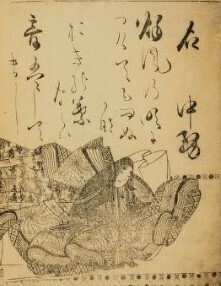 右 中務
秋風の吹に
つけてもとはぬ
哉
おきの葉
ならは
音はして
まし